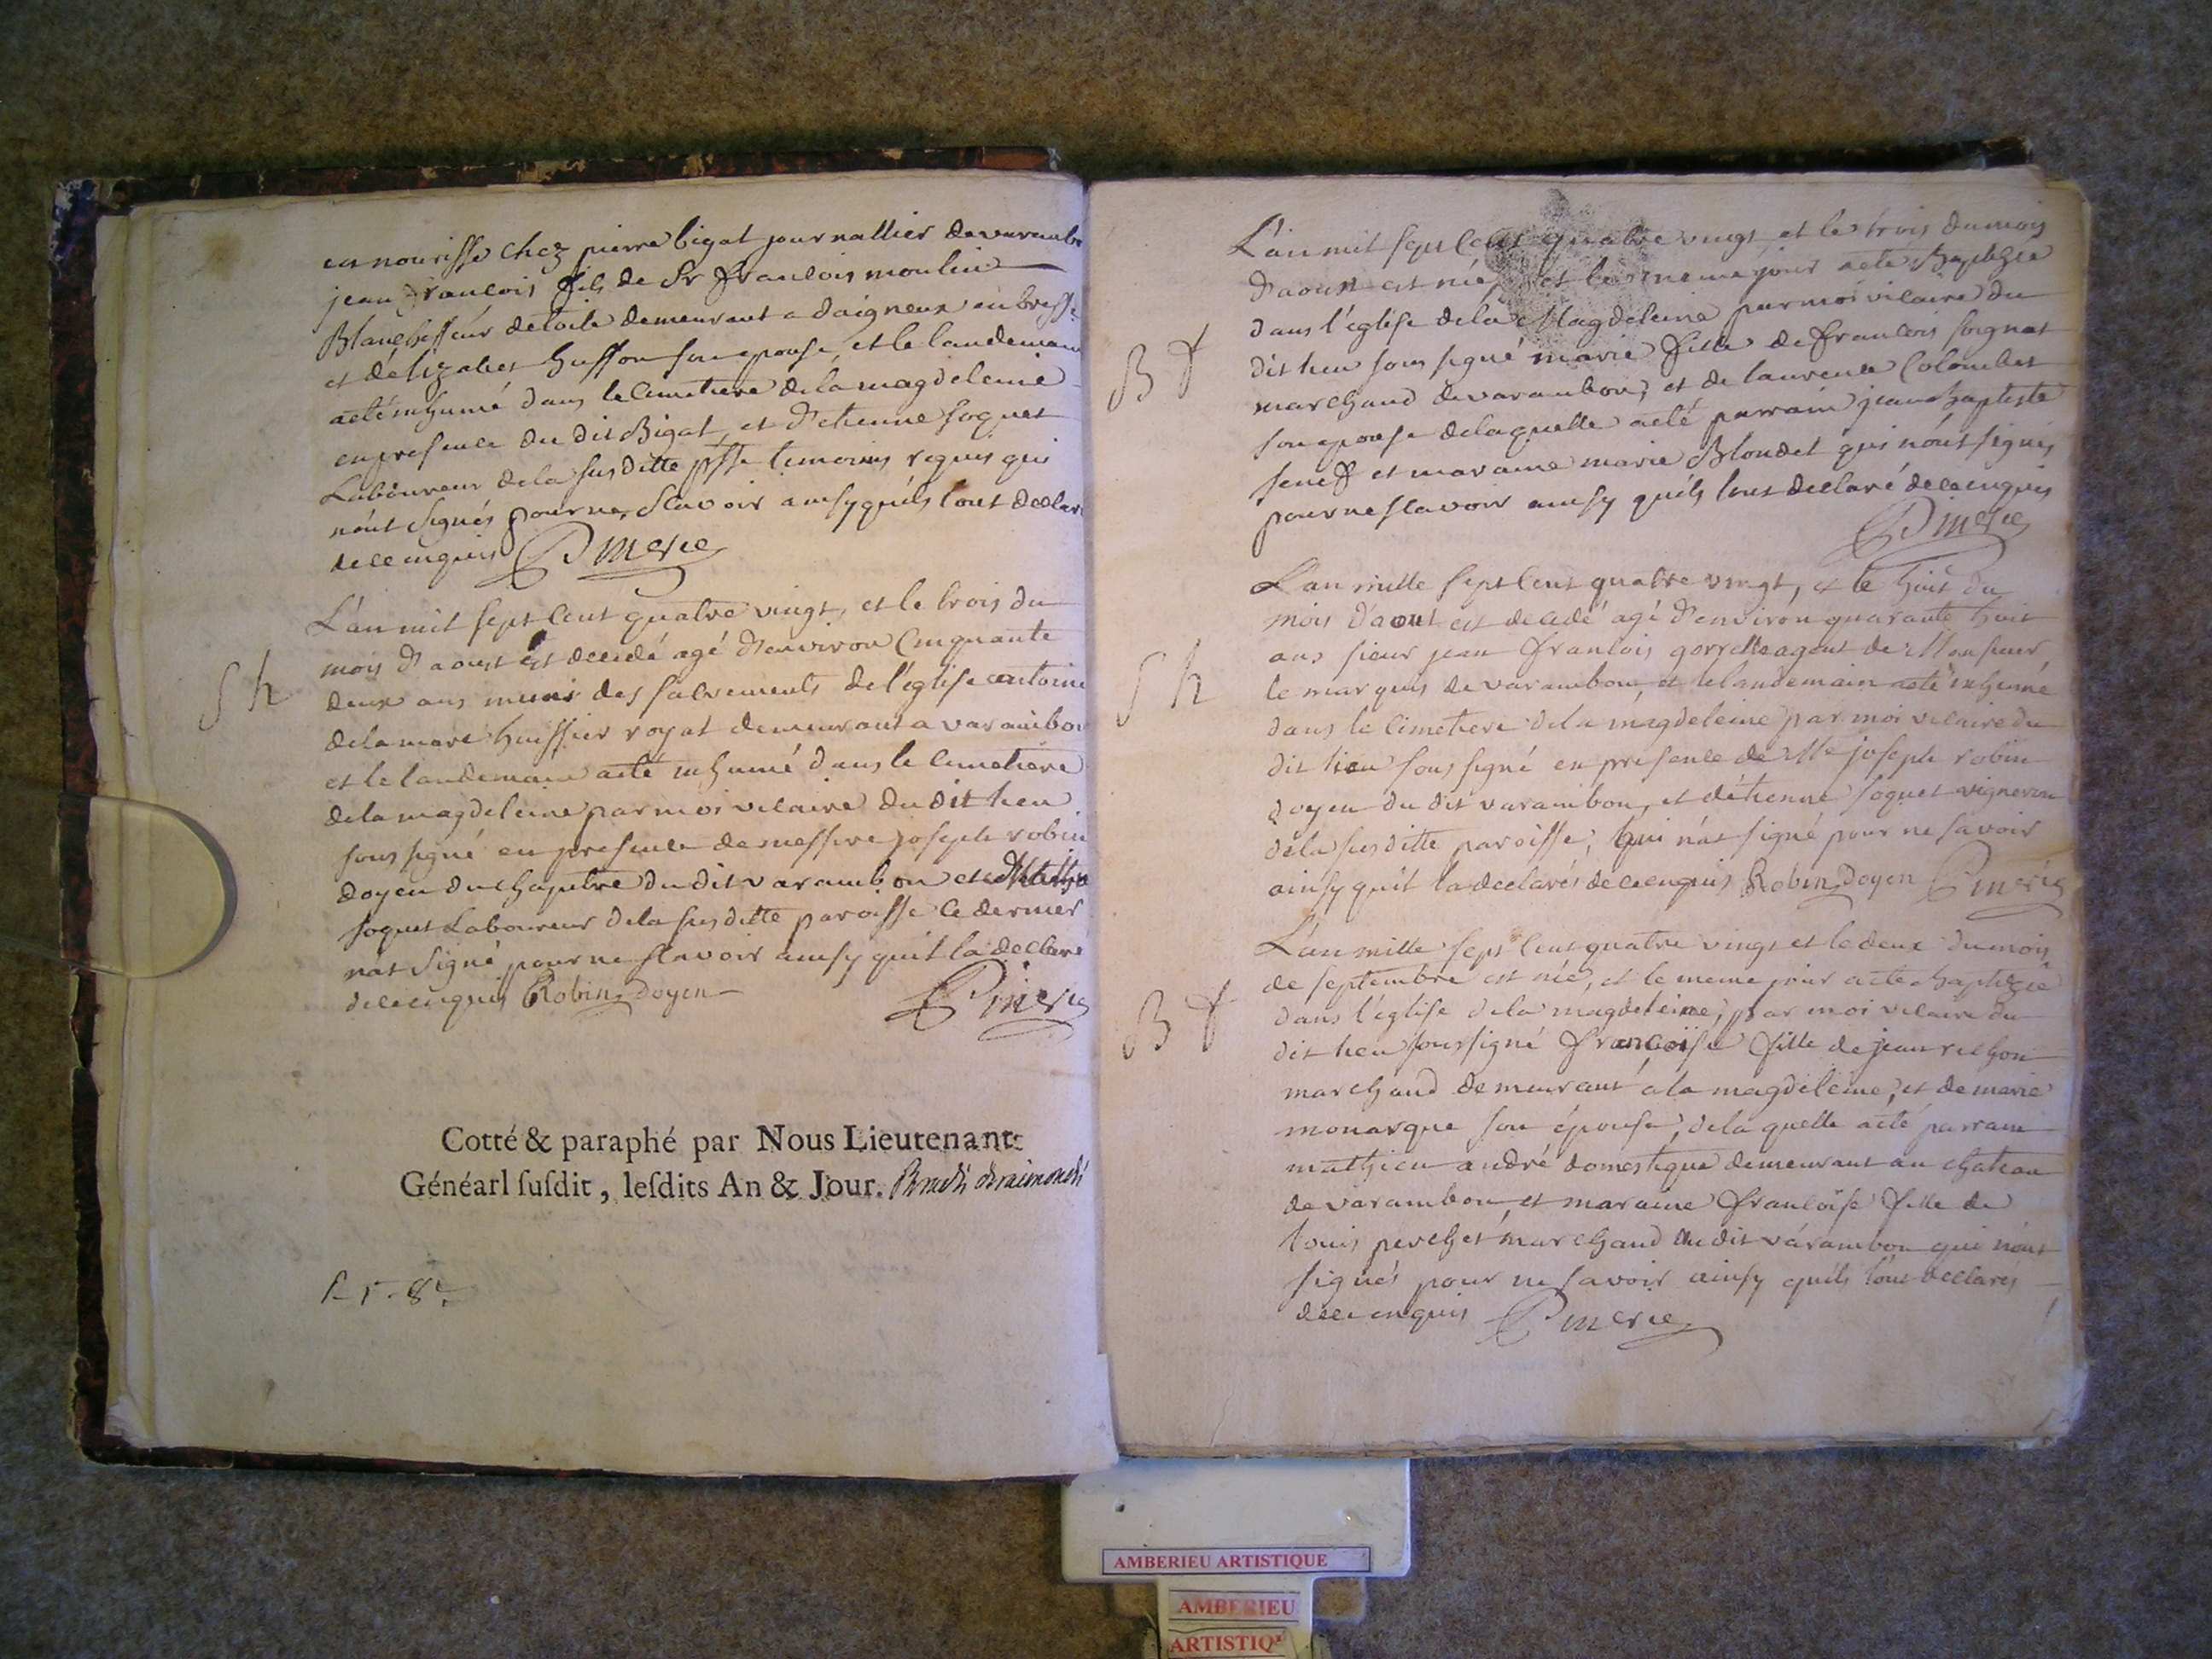 en nourisse chez pierre bigat journallier de varambo
jean François fils de Sr François moulin
Blanchisseur de toile demeurant a daigneux en bresse
et délizabet husson son epouse, et le landemain
a eté inhumé dans le cimetiere de la magdeleine
en presence du dit Bigat, et d'etienne soquet
Laboureur de la susditte psse temoins requis qui
n'ont signés pour ne sçavoir ainsy quils l'ont declar
de ce enquis P merie
L'an mil sept cent quatre vingt, et le trois du
mois d'aoust est decedé agé d'environ cinquante
deux ans muni des sacrements de l'eglise antoine
delamare huissier royal demeurant a varambon
et le landemain a eté inhumé dans le cimetiere
de la magdeleine par moi vicaire du dit lieu
sous signé en presence de messire joseph robin
doyen du chapitre du dit varambon et
soquet Laboureur de la susditte paroisse ce dernier
n'at signé pour ne sçavoir ainsy quil la declaré
de ce enquis Robin, doyen
P merie
S h
Cotté & paraphé par Nous Lieutenant
Généarl susdit, lesdits An & Jour.
L'an mil sept cent quatre vingt et le trois du mois
d'aoust est née, et le meme jour a eté Baptizée
dans l'eglise de la Magdeleine par moi vicaire du
dit lieu sous signé marie fille de françois soignat
marchand de varambon, et de laurence Colombet
son epouse de laquelle a eté parrain jean baptiste
et maraine marie Blondet qui n'ont signés
pour ne scavoir ainsy quils l'ont declaré de ce enquis
P merie
B f
L'an mille sept cent quatre vingt, et le huit du
mois d'aout est decedé agé d'environ quarante huit
ans sieur jean françois agent de Monsieur
le marquis de varambon, et le landemain a eté inhumé
dans le cimetiere de la magdeleine par moi vicaire du
dit lieu sous signé en presence de Mre joseph robin
doyen du dit varambon, et d'étienne soquet vigneron
de la susditte paroisse, qui n'at signé pour ne savoir
ainsy quil la declarés de ce enquis Robin, doyen P merie
S h
L'an mille sept cent quatre vingt et le deux du mois
de septembre est née, et le meme jour a eté baptizée
dans l'église de la magdeleine, par moi vicaire du
dit lieu soussigné françoise fille de jean rechon
marchand demeurant a la magdeleine, et de marie
monarque son épouse, de la quelle a eté parrain
mathieu andré domestique demeurant au chateau
de varambon, et maraine françoise fille de
louis perchet marchand du dit varambon qui n'ont
signés pour ne savoir ainsy quils l'ont declarés
de ce enquis P merie
B f
AMBERIEU ARTISTIQUE
AMBERIEU